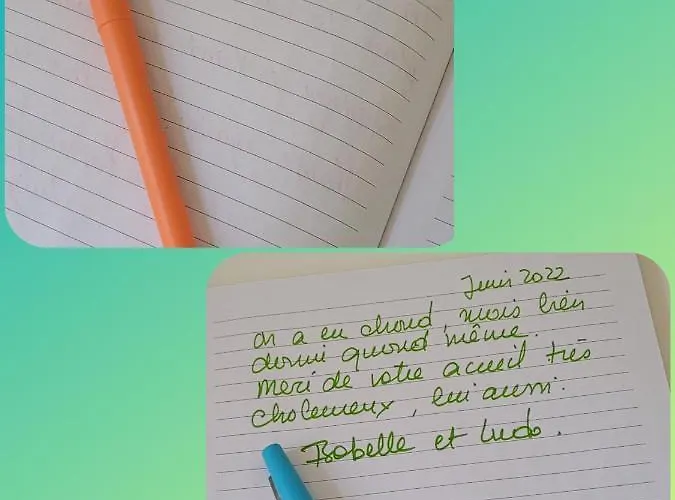 Juin 2022
On a eu chaud, mais bien
dormi quand même.
Merci de votre accueil très
chaleureux, lui aussi.
Isabelle et Ludo.